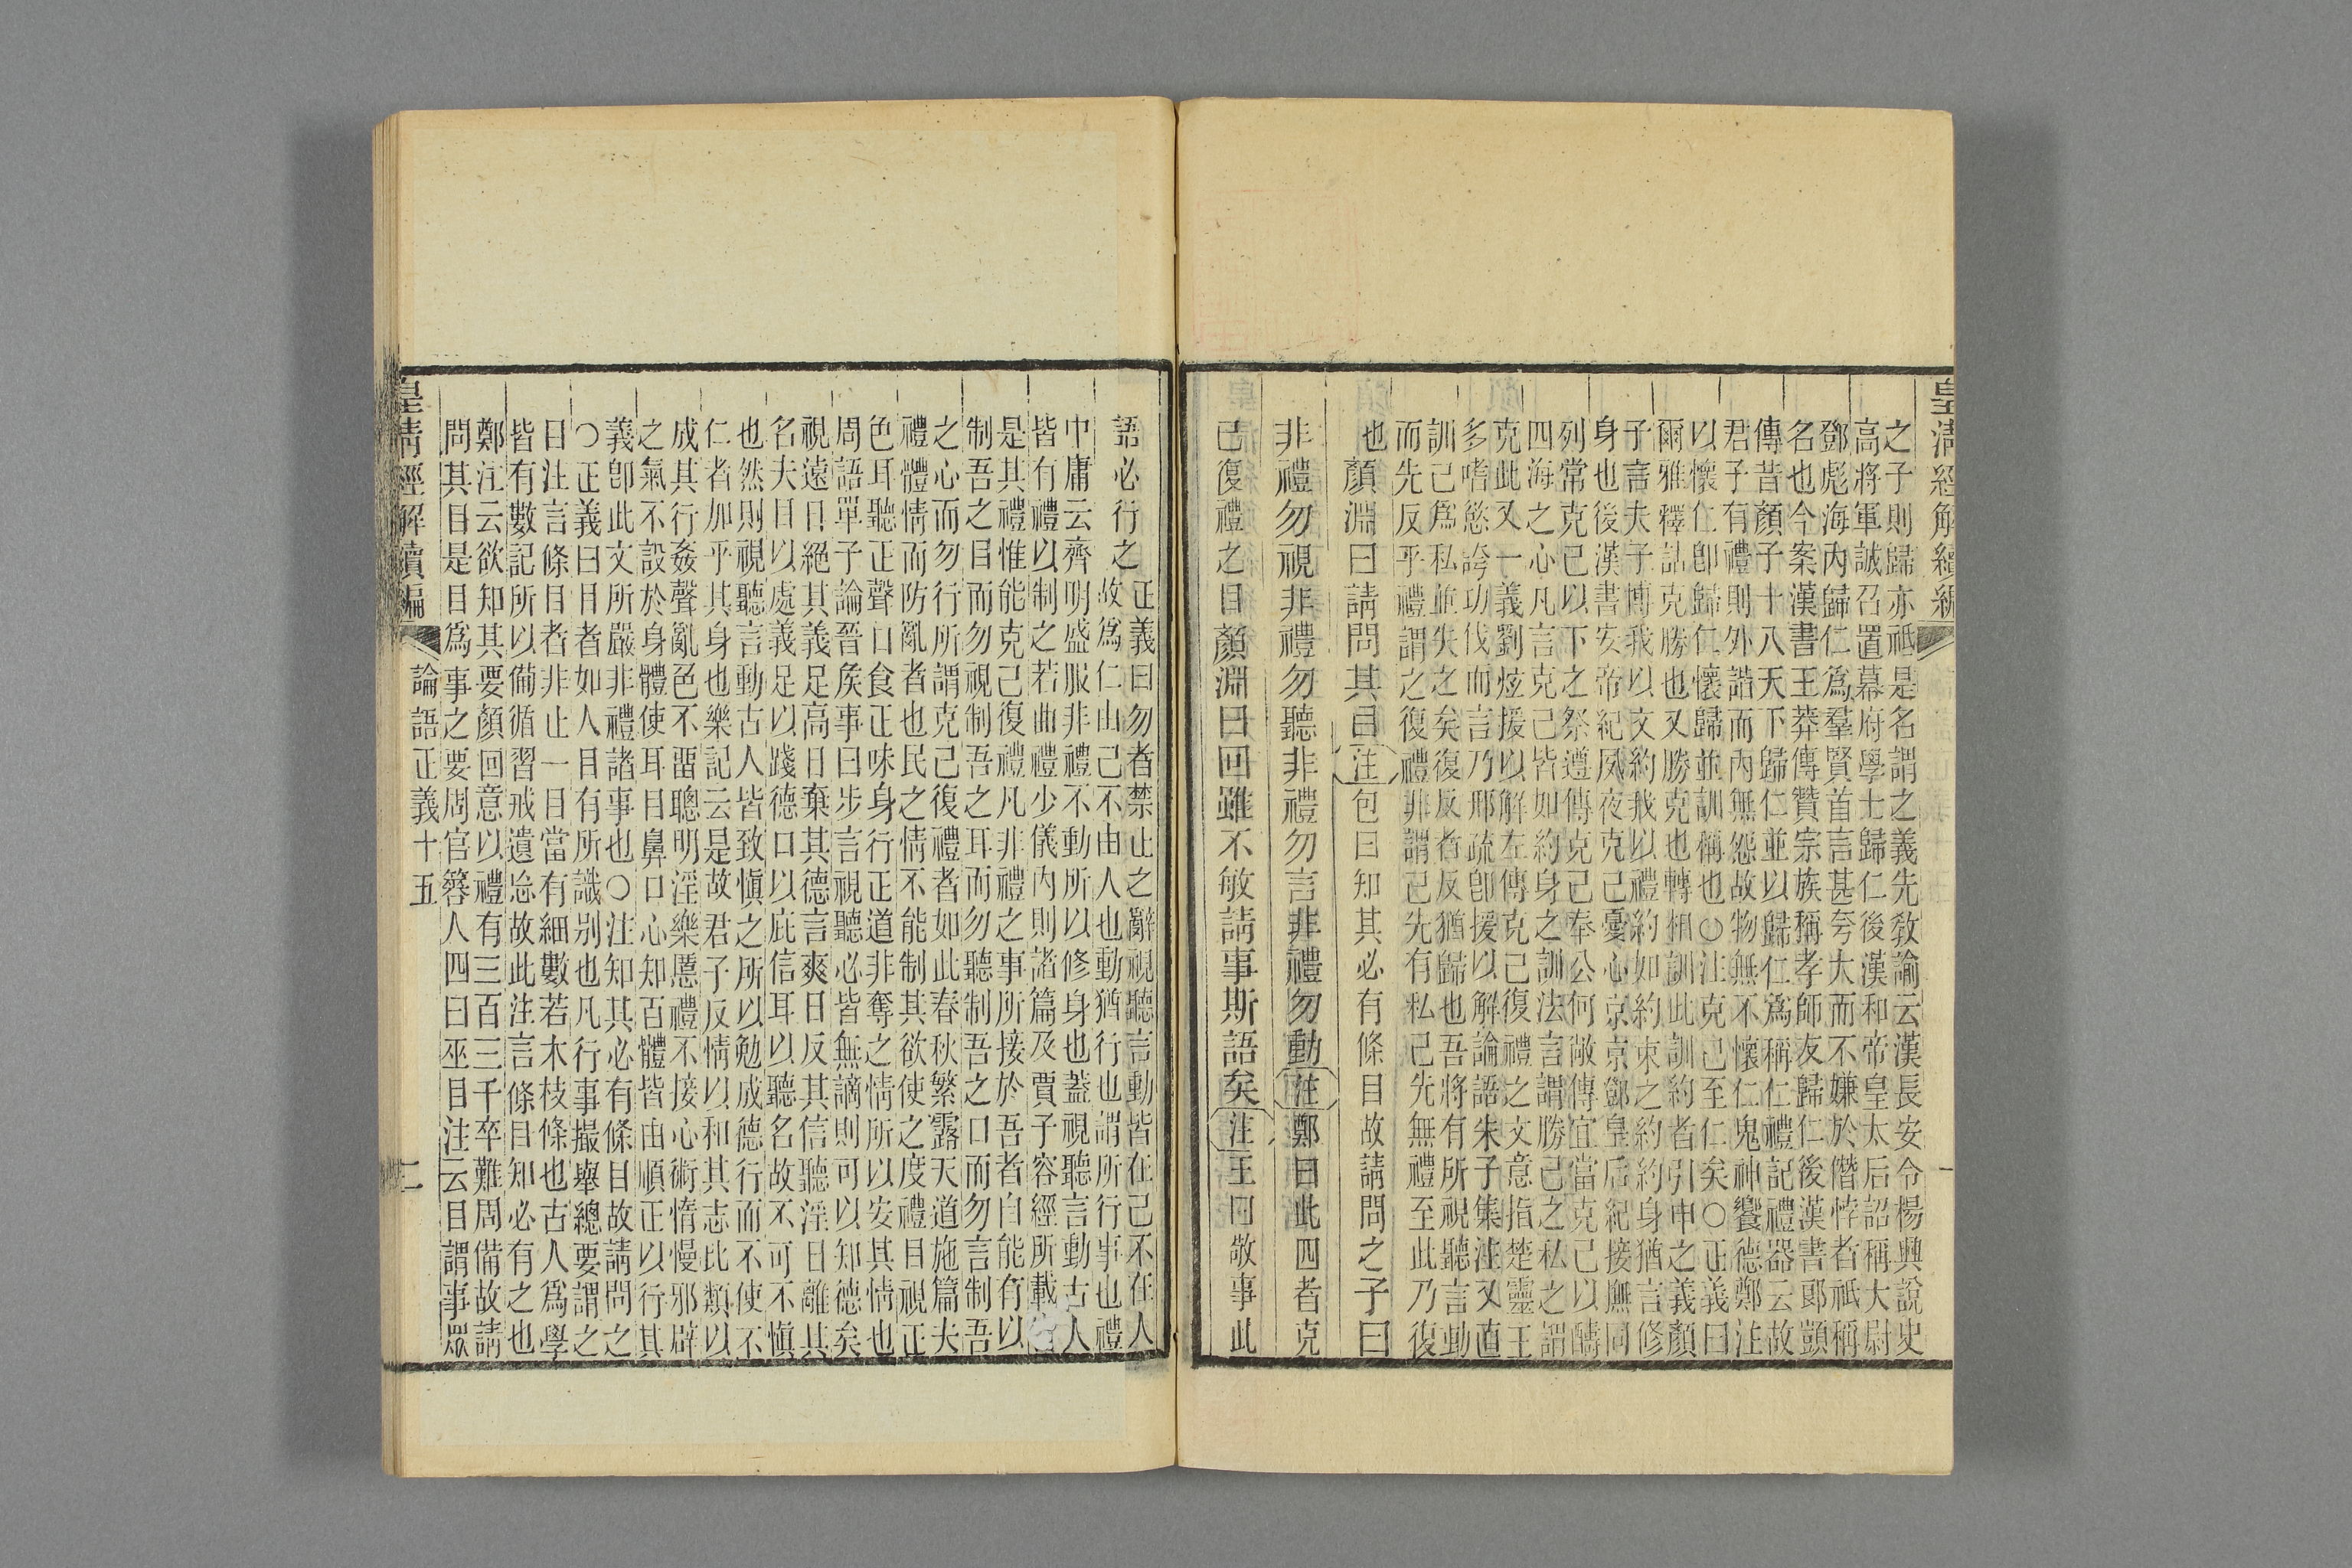 皇清經解續編
之子則歸亦祗是名謂之義先敎諭云漢長安令楊興說史
高將軍誠召置幕府學士歸仁後漢和帝皇太后詔稱大尉
鄧彪海內歸仁爲羣賢首言甚夸大而不嫌於僭悖者祗稱
名也今案漢書王莽傳贊宗族稱孝師友歸仁後漢書郎顗
傳昔顏子十八天下歸仁並以歸仁爲稱仁禮記禮器云故
君子有禮則外諧而內無怨故物無不懷仁鬼神饗德鄭注
以懷仁卽歸仁懷歸並訓稱也○注克己至仁矣○正義曰
爾雅釋詁克勝也又勝克也轉相訓此訓約者引申之義顏
子言夫子博我以文約我以禮約如約束之約約身猶言修
身也後漢書安帝紀夙夜克己憂心京京鄧皇后紀接撫同
列常克己以下之祭遵傳克己奉公何敞傳宜當克己以醻
四海之心凡言克己皆如約身之訓法言謂勝己之私之謂
克此又一義劉炫援以解左傳克己復禮之文意指楚靈王
多嗜慾誇功伐而言乃邢疏卽援以解論語朱子集注又直
訓己爲私並失之矣復反者反猶歸也吾將有所視聽言動
而先反乎禮謂之復禮非謂己先有私己先無禮至此乃復
也
顏淵曰請問其目注包曰知其必有條目故請問之子曰
非禮勿視非禮勿聽非禮勿言非禮勿動注鄭曰此四者克
己復禮之目顏淵曰回雖不敏請事斯語矣注王曰敬事此
語必行之正義曰勿者禁止之辭視聽言動皆在己不在人
故爲仁由己不由人也動猶行也謂所行事也禮
中庸云齊明盛服非禮不動所以修身也蓋視聽言動古人
皆有禮以制之若曲禮少儀內則諸篇及賈子容經所載
是其禮惟能克己復禮凡非禮之事所接於吾者自能有以
制吾之目而勿視制吾之耳而勿聽制吾之口而勿言制吾
之心而勿行所謂克己復禮者如此春秋繁露天道施篇夫
禮體情而防亂者也民之情不能制其欲使之度禮目視正
色耳聽正聲口食正味身行正道非奪之情所以安其情也
周語單子論晉矦事曰步言視聽必皆無謫則可以知德矣
視遠日絕其義足高日棄其德言爽日反其信聽淫日離其
名夫目以處義足以踐德口以庇信耳以聽名故不可不愼
也然則視聽言動古人皆致愼之所以勉成德行而不使不
仁者加乎其身也樂記云是故君子反情以和其志比類以
成其行姦聲亂色不畱聰明淫樂慝禮不接心術惰慢邪辟
之氣不設於身體使耳目鼻口心知百體皆由順正以行其
義卽此文所嚴非禮諸事也○注知其必有條目故請問之
○正義曰目者如人目有所識別也凡行事撮舉總要謂之
目注言條目者非止一目當有細數若木枝條也古人爲學
皆有數記所以備循習戒遺忘故此注言條目知必有之也
鄭注云欲知其要顏回意以禮有三百三千卒難周備故請
問其目是目爲事之要周官簭人四曰巫目注云目謂事眾
皇清經解續編 論語正義十五 二